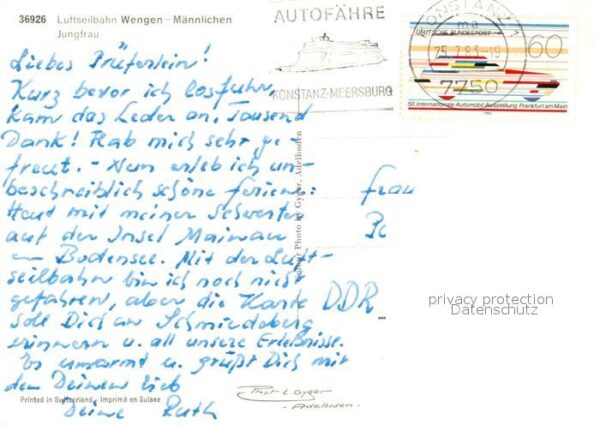 36926 Luftseilbahn Wengen - Männlichen
Jungfrau
AUTOFÄHRE
KONSTANZ-MEERSBURG
KONSTANZ 1
7750
DEUTSCHE BUNDESPOST
60
50. Internationale Automobil-Ausstellung Frankfurt am Main
Liebes Prüferlein!
Kurz bevor ich losfuhr,
kam das Leder an. Tausend
Dank! Hab mich sehr ge-
freut. - Nun erleb ich un-
beschreiblich schöne Ferien:
Heut mit meiner Schwester
auf der Insel Mainau
im Bodensee. Mit der Luft-
seilbahn bin ich noch nicht
gefahren, aber die Karte
soll Dich an Schmiedeberg
erinnern u. all unsere Erlebnisse.
Es umarmt u. grüßt Dich mit
dem Deinen lieb
Deine Ruth
Frau
DDR
Photo by Gyger, Adelboden
privacy protection
Datenschutz
Printed in Switzerland - Imprimé en Suisse
Gyger
Adelboden.